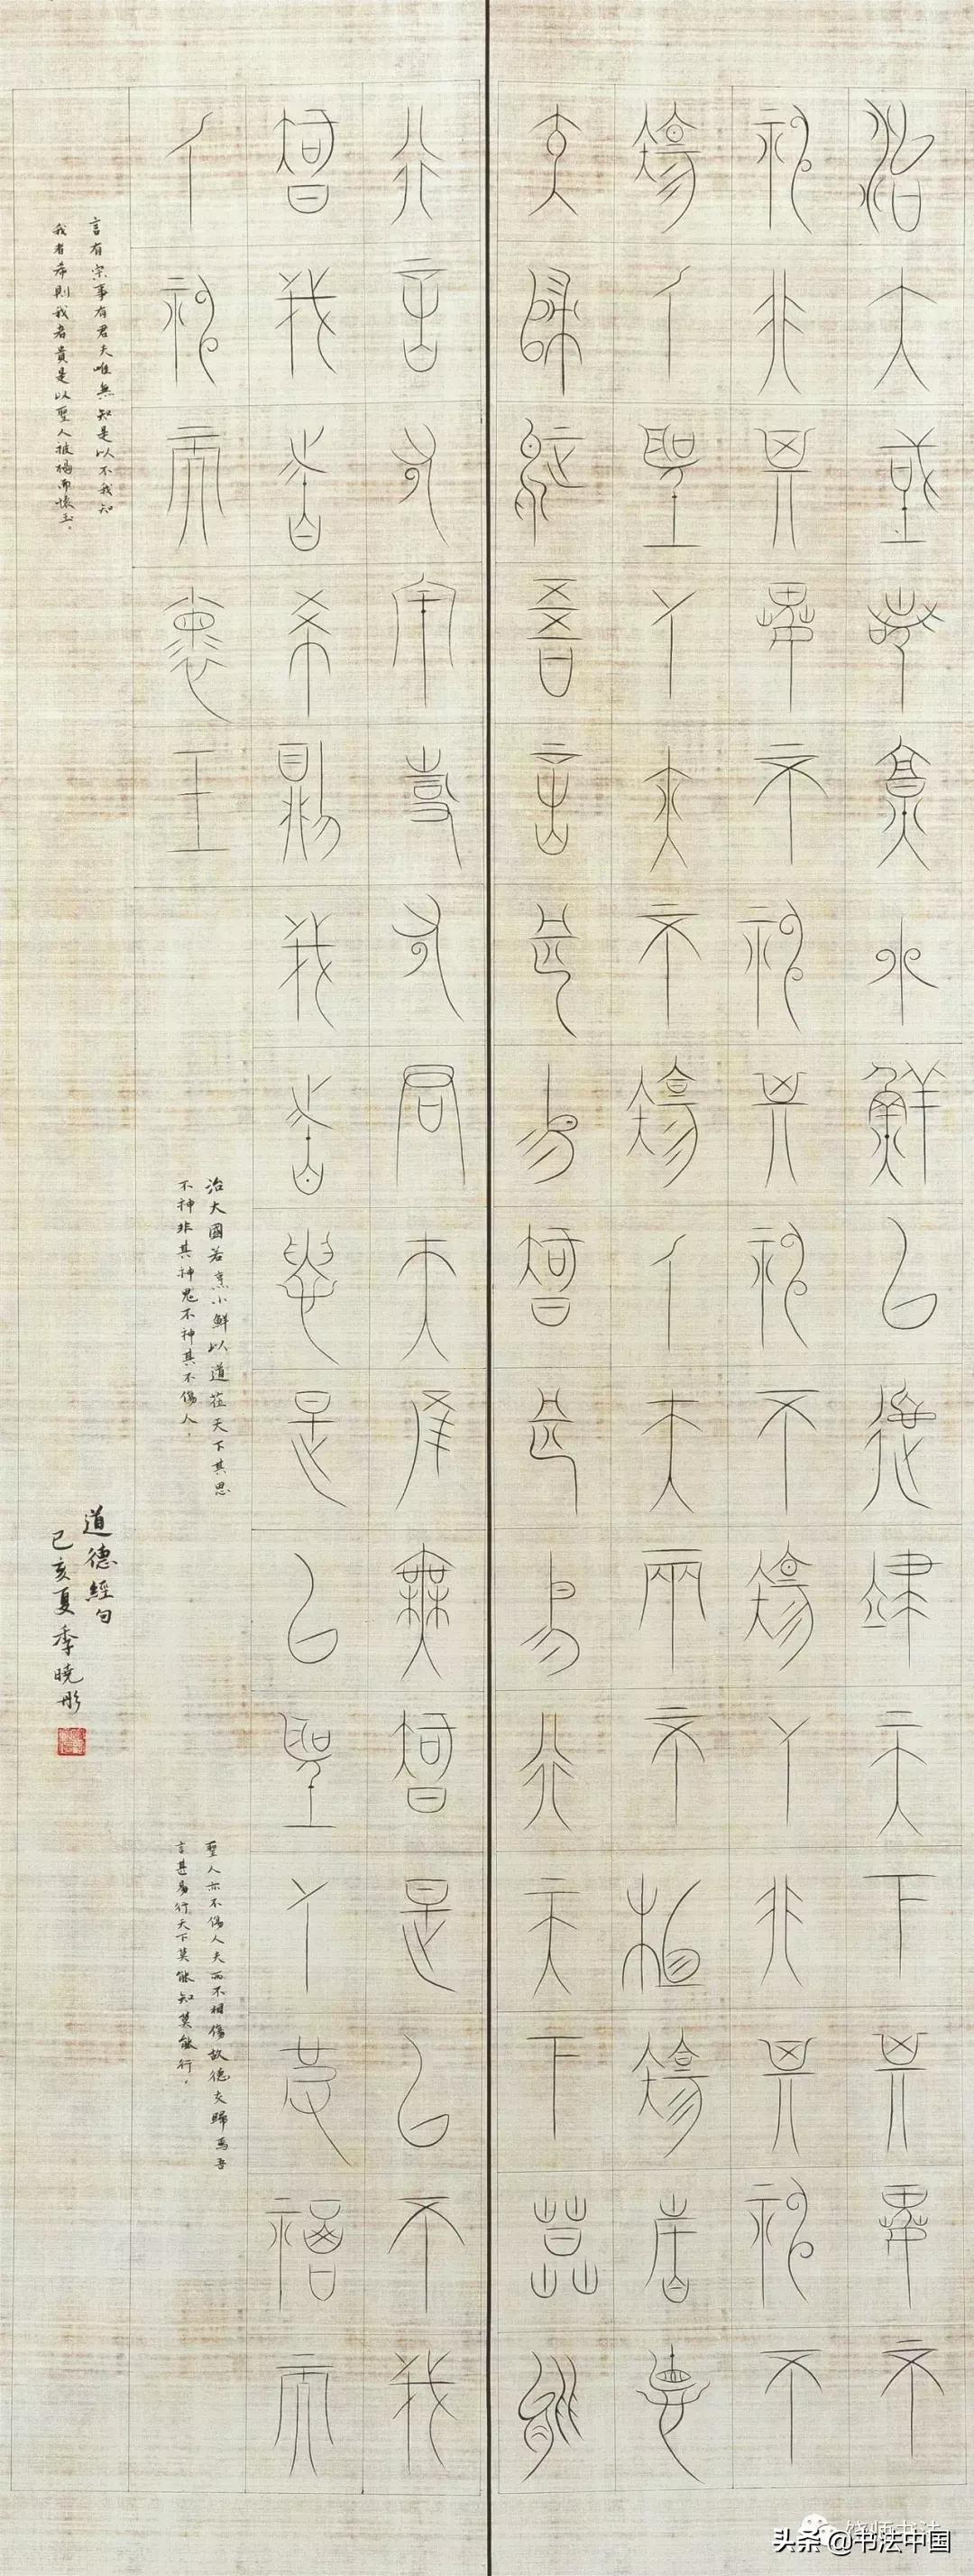 治大國若烹小鮮以德莅天下其鬼不
神非其鬼不神其神不傷人非其神不
傷人聖人亦不傷人夫兩不相傷故德
交歸焉吾言甚易知甚易行天下莫能
行言有宗事有君夫唯無知是以不我
知我者希則我者貴是以聖人被褐而
人神而懷玉
治大國若烹小鮮以道莅天下其思
不神非其神鬼不神其不傷人
聖人亦不傷人夫而不相傷故德交歸焉吾
言甚易行天下莫能知莫能行
言有宗事有君夫唯無知是以不我知
我者希則我者貴是以聖人被褐而懷玉
道德經句
己亥夏季曉彤
头条 @书法中国